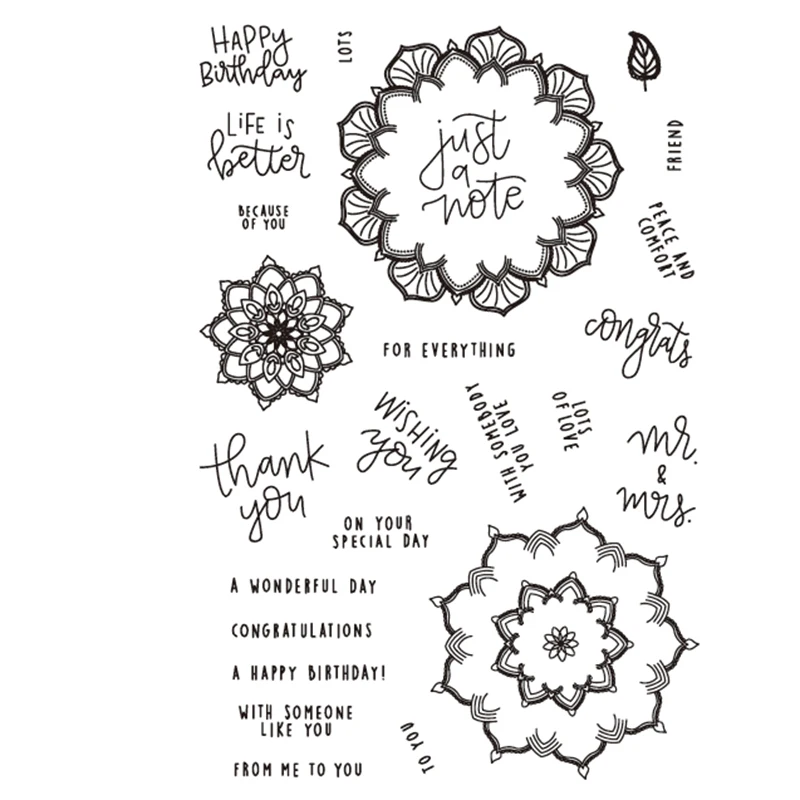 HAPPY
Birthday
LOTS
just
a
note
LIFE IS
better
FRIEND
BECAUSE
OF YOU
PEACE AND
COMFORT
congrats
FOR EVERYTHING
WISHING
you
WITH SOMEBODY
YOU LOVE
LOTS
OF LOVE
mr.
&
mrs.
thank
you
ON YOUR
SPECIAL DAY
A WONDERFUL DAY
CONGRATULATIONS
A HAPPY BIRTHDAY!
WITH SOMEONE
LIKE YOU
TO YOU
FROM ME TO YOU